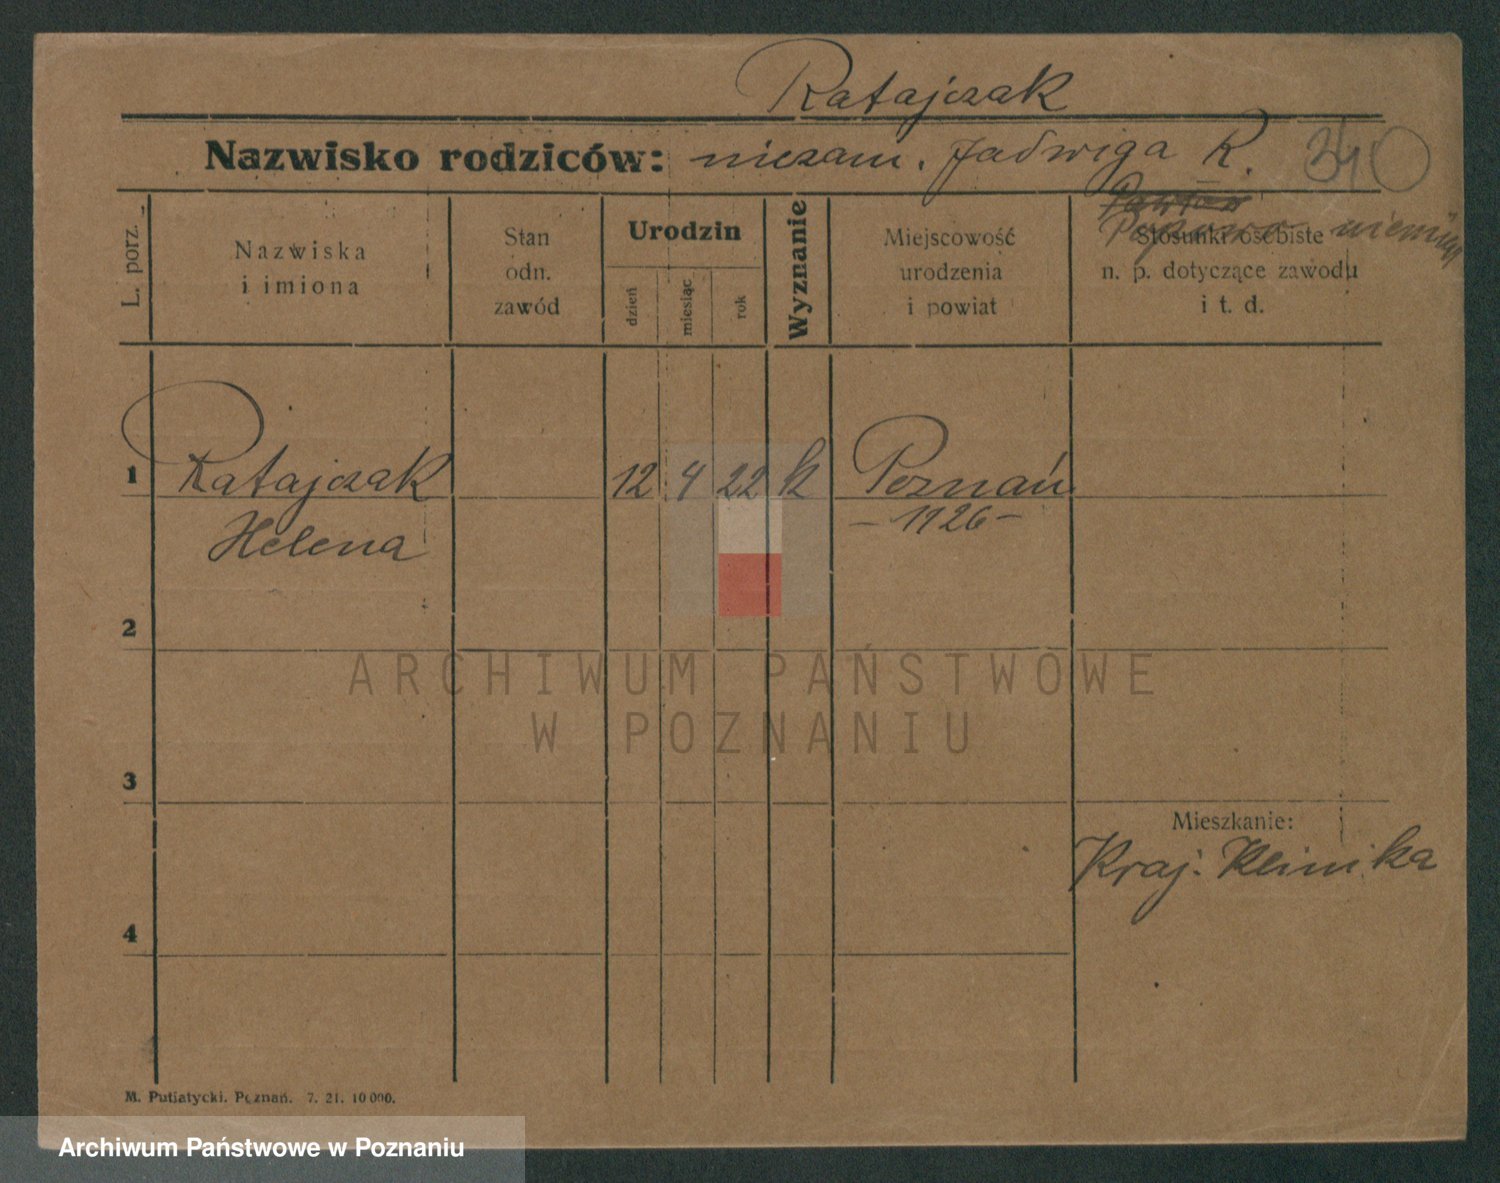 Ratajczak
Nazwisko rodziców: niezam. Jadwiga R. 340
L. porz.
Nazwiska
i imiona
Stan
odn.
zawód
Urodzin
dzień
miesiąc
rok
Wyznanie
Miejscowość
urodzenia
i powiat
Stosunki osobiste
n. p. dotyczące zawodu
i t. d.
1 Ratajczak 12 4 22 k Poznań
Helena - 1926 -
2
3
4
Mieszkanie:
Kraj. Klinika
ARCHIWUM PAŃSTWOWE
W POZNANIU
M. Putiatycki. Poznań. 7. 21. 10000.
Archiwum Państwowe w Poznaniu